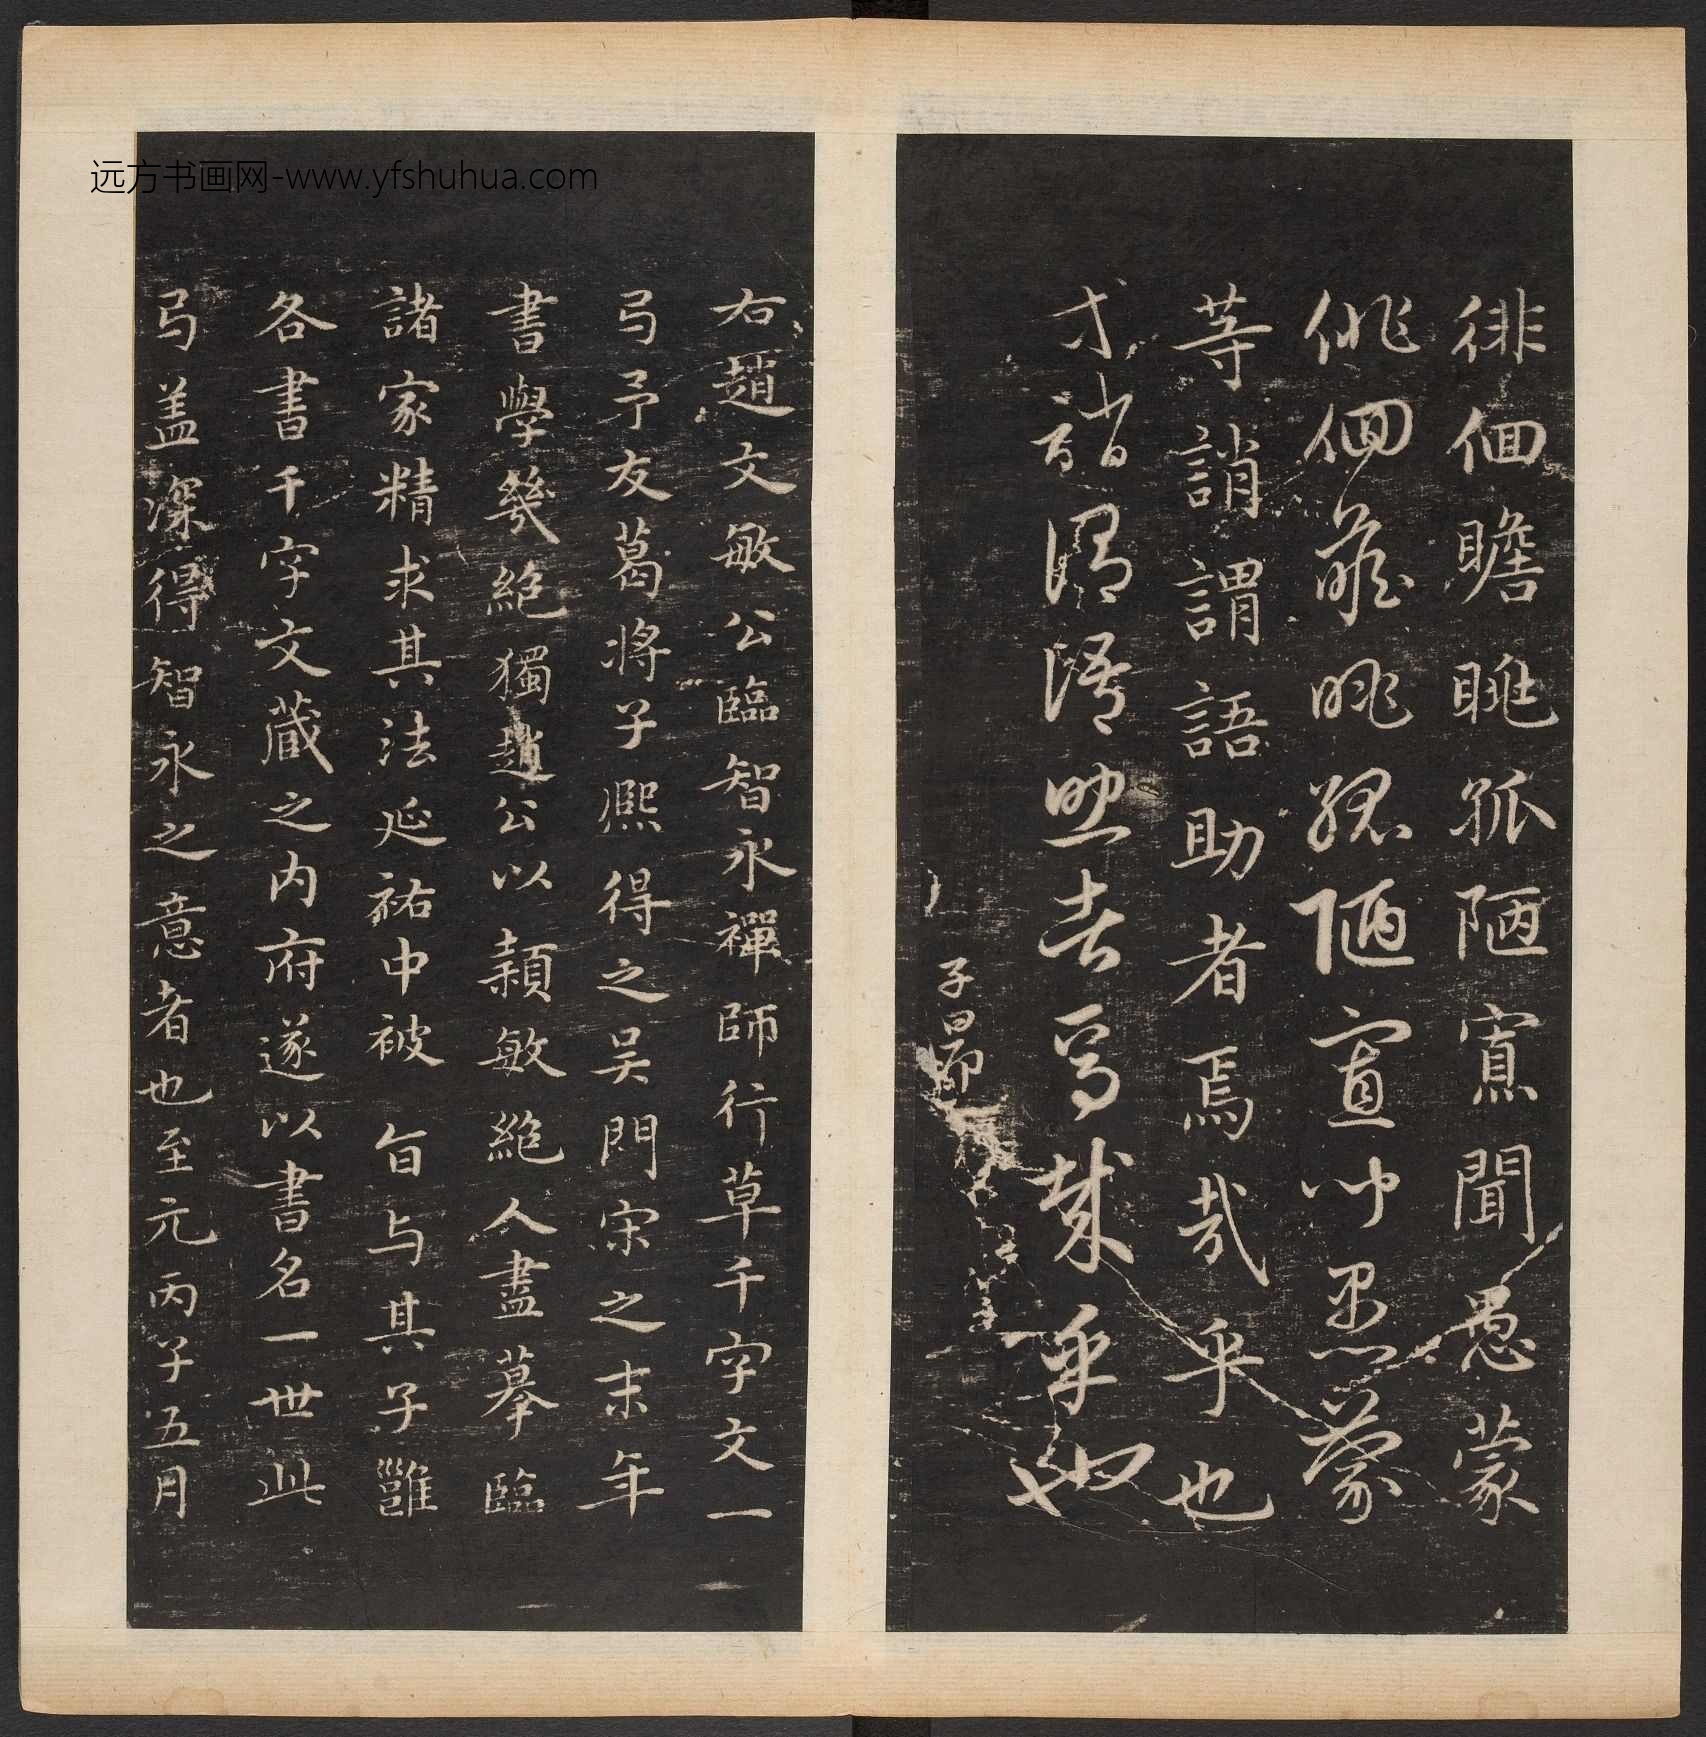 远方书画网-www.yfshuhua.com
徘徊瞻眺孤陋寡聞愚蒙
徘徊瞻眺孤陋寡聞愚蒙
等誚謂語助者焉哉乎也
等誚謂語助者焉哉乎也
子昂
右趙文敏公臨智永禪師行草千字文一
弓予友葛将子熈得之吴門宋之末年
書學幾絶獨趙公以穎敏絶人盡摹臨
諸家精求其法延祐中被旨与其子雝
各書千字文藏之内府遂以書名一世此
弓盖深得智永之意者也至元丙子五月